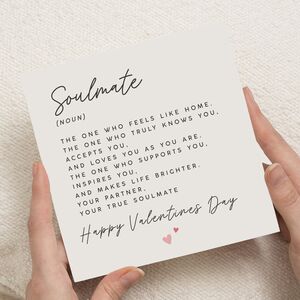 Soulmate
(NOUN)
THE ONE WHO FEELS LIKE HOME.
THE ONE WHO TRULY KNOWS YOU,
ACCEPTS YOU,
AND LOVES YOU AS YOU ARE.
THE ONE WHO SUPPORTS YOU,
INSPIRES YOU,
AND MAKES LIFE BRIGHTER.
YOUR PARTNER,
YOUR TRUE SOULMATE
Happy Valentines Day